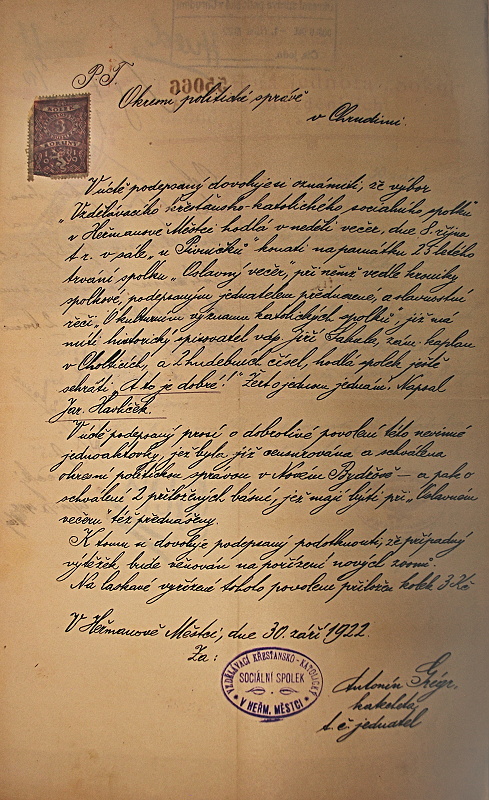 P. T.
Okresní politické správě
v Chrudimi.
35066
KOLEK
3
KORUNY
V úctě podepsaný dovoluje si oznámiti, že výbor
„Vzdělávacího křesťansko-katolického sociálního spolku
v Heřmanově Městci hodlá v neděli večer, dne 8. října
t. r. v sále „u Pivničků" konati na památku 25 letého
trvání spolku „Oslavný večer", při němž vedle kroniky
spolkové, podepsaným jednatelem přednesené, a slavnostní
řeči „O kulturním významu katolických spolků", již má
míti historický spisovatel vdp. Jiří Sahula, zám. kaplan
v Cholticích, a 2 hudebních čísel, hodlá spolek ještě
sehráti „A to je dobré!" Žert o jednom jednání. Napsal
Jar. Havlíček.
V úctě podepsaný prosí o dobrotivé povolení této nevinné
jednoaktovky, jež byla již censurována a schválena
okresní politickou správou v Novém Bydžově – a pak o
schválení 2 přiložených básní, jež mají býti při „Oslavném
večeru" též předneseny.
K tomu si dovoluje podepsaný podotknouti, že případný
výtěžek bude věnován na pořízení nových
Na laskavé vyřízení tohoto povolení přiložen kolek 3 Kč
V Heřmanově Městci, dne 30. září 1922.
Za:
VZDĚLÁVACÍ KŘESŤANSKO-KATOLICKÝ
SOCIÁLNÍ SPOLEK
V HEŘM. MĚSTCI
Antonín Grégr,
t. č. jednatel